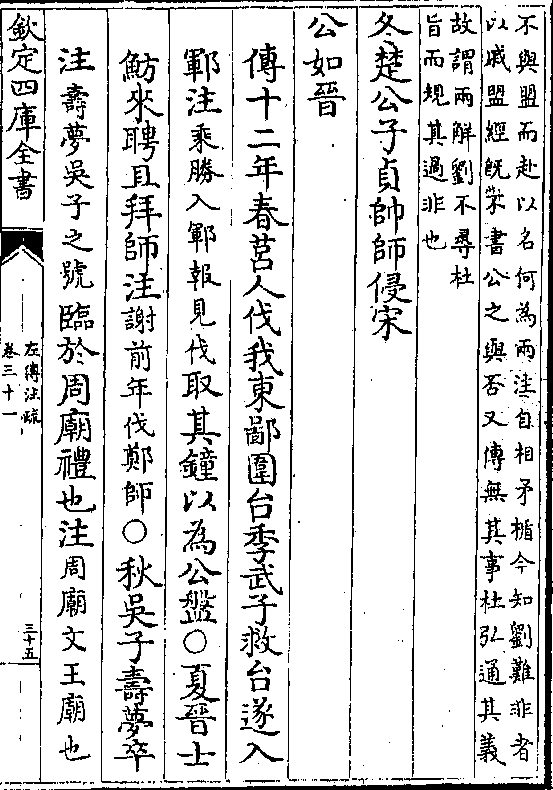 不與盟而赴以名何為兩注自相矛楯今知劉難非者
以戚盟經既不書公之與否又傳無其事杜弘通其義
故謂兩解劉不尋杜
旨而規其過非也
冬楚公子貞帥師侵宋
公如晉
傳十二年春莒人伐我東鄙圍台季武子救台遂入
鄆注乘勝入鄆報見伐取其鐘以為公盤○夏晉士
魴來聘且拜師注謝前年伐鄭師○秋吳子壽夢卒
注壽夢吳子之號臨於周廟禮也注周廟文王廟也
欽定四庫全書
左傳注疏
卷三十一
三十五